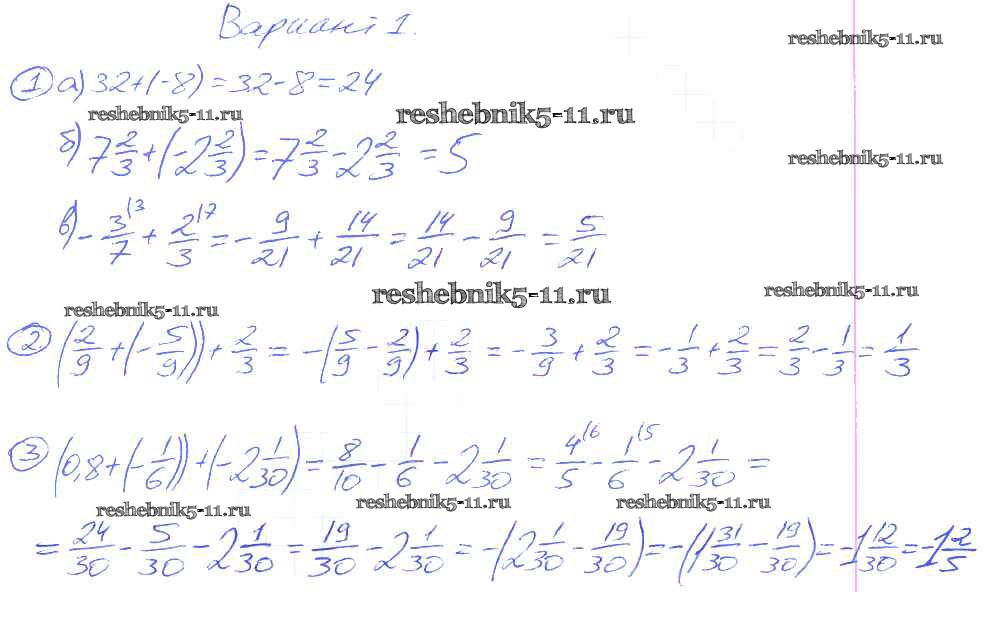 Вариант 1.
reshebnik5-11.ru
① а) 32+(-8)=32-8=24
reshebnik5-11.ru reshebnik5-11.ru
б) 7 2/3 + (-2 2/3) = 7 2/3 - 2 2/3 = 5
reshebnik5-11.ru
в) - 3/7 |3 + 2/3 |7 = - 9/21 + 14/21 = 14/21 - 9/21 = 5/21
reshebnik5-11.ru reshebnik5-11.ru reshebnik5-11.ru
② (2/9 + (- 5/9)) + 2/3 = -(5/9 - 2/9) + 2/3 = - 3/9 + 2/3 = - 1/3 + 2/3 = 2/3 - 1/3 = 1/3
③ (0,8 + (- 1/6)) + (-2 1/30) = 8/10 - 1/6 - 2 1/30 = 4/5 |6 - 1/6 |5 - 2 1/30 =
reshebnik5-11.ru reshebnik5-11.ru reshebnik5-11.ru
= 24/30 - 5/30 - 2 1/30 = 19/30 - 2 1/30 = -(2 1/30 - 19/30) = -(1 31/30 - 19/30) = -1 12/30 = -1 2/5